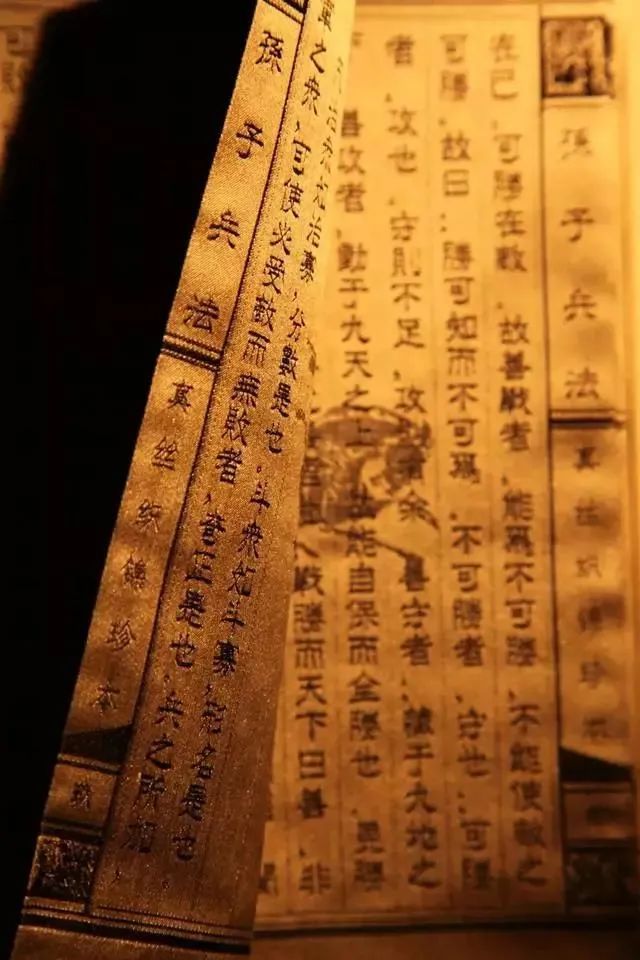 孫子兵法 真丝织锦珍本
在己，可勝在敵，故善戰者，能爲不可勝，不能使敵之
可勝，故曰：勝可知而不可爲，不可勝者，守也；可勝
者，攻也，守則不足，攻有余，善守者，藏于九地之
善攻者，動于九天之上，故能自保而全勝也，見勝
戰勝而天下曰善，非
治衆如治寡，分數是也，斗衆如斗寡，形名是也
軍之衆，可使必受敵而無敗者，奇正是也，兵之所加，
孫子兵法 真丝织锦珍本